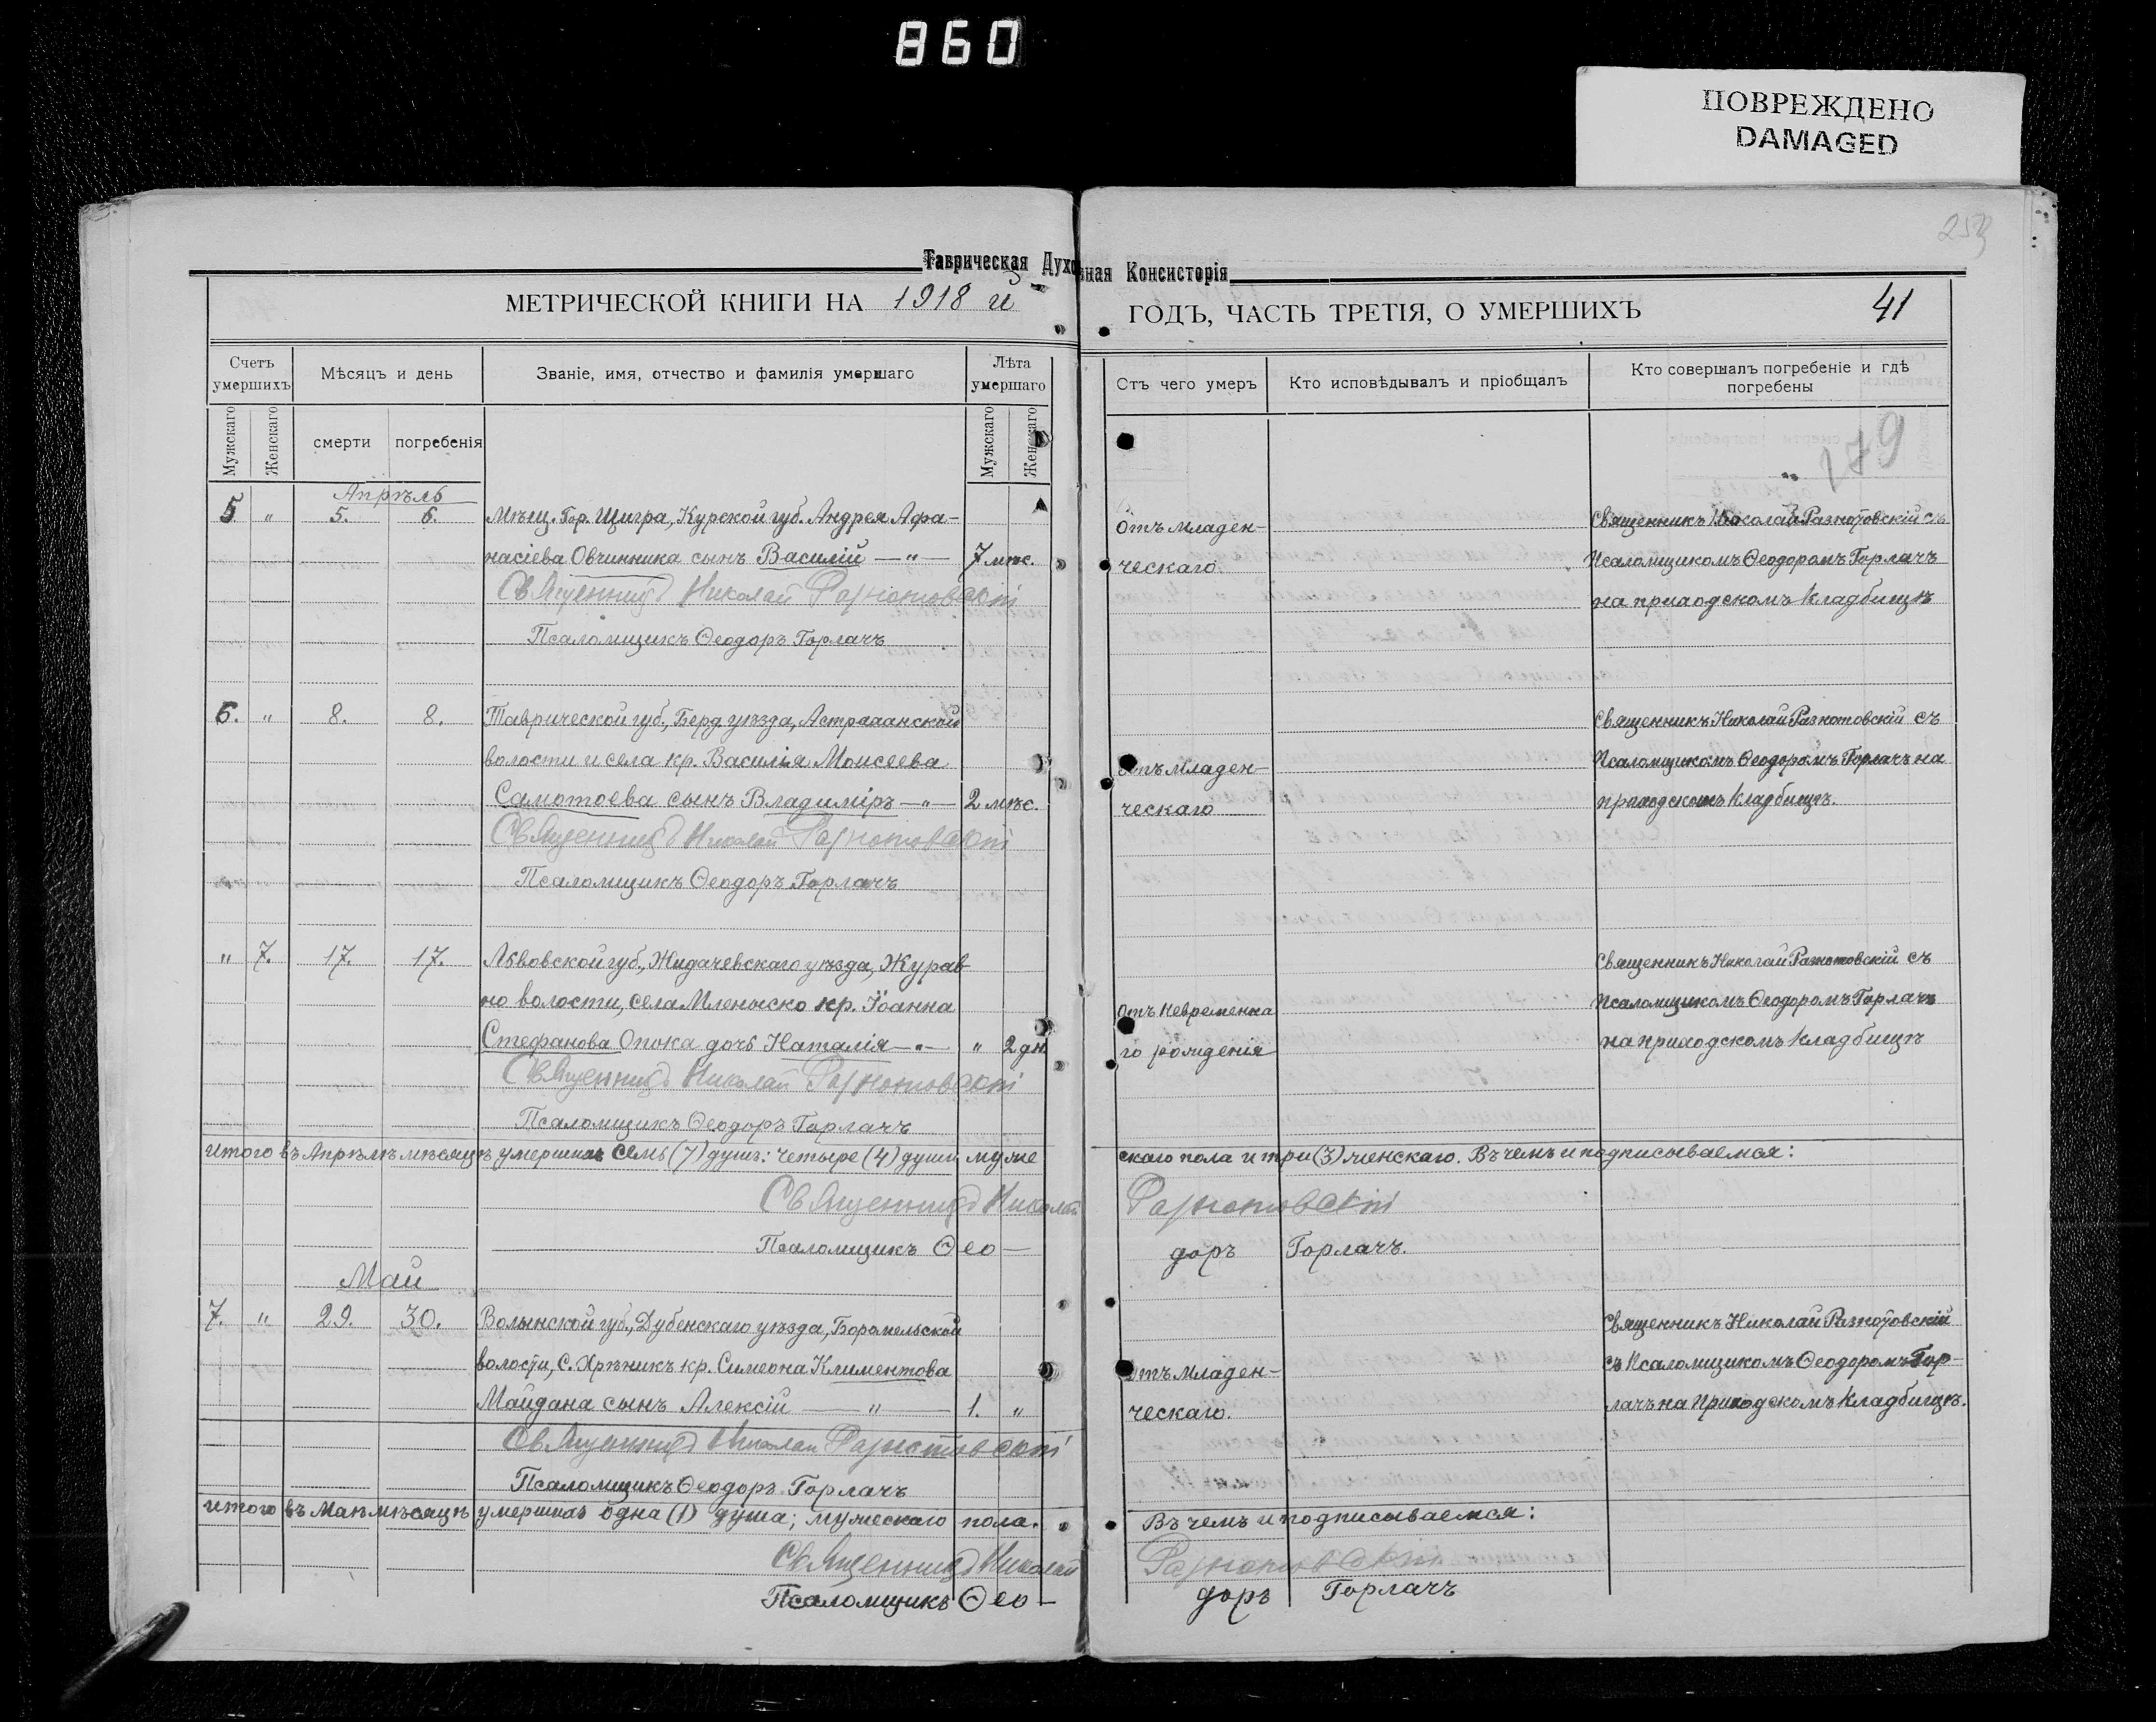 860
ПОВРЕЖДЕНО
DAMAGED
253
Таврическая Духовная Консисторія
МЕТРИЧЕСКОЙ КНИГИ НА 1918 й
ГОДЪ, ЧАСТЬ ТРЕТІЯ, О УМЕРШИХЪ
41
Счетъ умершихъ
Мѣсяцъ и день
Званіе, имя, отчество и фамилія умершаго
Лѣта умершаго
Мужскаго
Женскаго
смерти
погребенія
Мужскаго
Женскаго
Отъ чего умеръ
Кто исповѣдывалъ и пріобщалъ
Кто совершалъ погребеніе и гдѣ
погребены
179
Апрѣль
5 " 5. 6. Мѣщ. Гор. Щигра, Курской губ. Андрея Афа-
насіева Овчинника сынъ Василій —"— 7 мѣс.
Священникъ Николай Разнотовскій
Псаломщикъ Ѳеодоръ Горлачъ
Отъ младен-
ческаго
Священникъ Николай Разнотовскій съ
Псаломщикомъ Ѳеодоромъ Горлачъ
на приходскомъ кладбищѣ
6. " 8. 8. Таврической губ., Берд. уѣзда, Астраханской
волости и села кр. Василія Моисеева
Самотоева сынъ Владиміръ —"— 2 мѣс.
Священникъ Николай Разнотовскій
Псаломщикъ Ѳеодоръ Горлачъ
Отъ младен-
ческаго
Священникъ Николай Разнотовскій съ
Псаломщикомъ Ѳеодоромъ Горлачъ на
приходскомъ кладбищѣ.
" 7. 17. 17. Львовской губ., Жидачевскаго уѣзда, Журав-
но волости, села Мленыско кр. Іоанна
Стефанова Опока дочь Наталія —"— " 2 дн
Священникъ Николай Разнотовскій
Псаломщикъ Ѳеодоръ Горлачъ
Отъ невременна
го рожденія
Священникъ Николай Разнотовскій съ
Псаломщикомъ Ѳеодоромъ Горлачъ
на приходскомъ кладбищѣ
Итого въ Апрѣлѣ мѣсяцѣ умершихъ семь (7) душъ: четыре (4) души муже
скаго пола и три (3) женскаго. Въ чемъ и подписываемся:
Священникъ Николай Разнотовскій
Псаломщикъ Ѳео—
доръ Горлачъ.
Май
7. " 29. 30. Волынской губ., Дубенскаго уѣзда, Боремельской
волости, с. Хрѣникъ кр. Симеона Климентова
Майдана сынъ Алексій —"— 1. "
Священникъ Николай Разнотовскій
Псаломщикъ Ѳеодоръ Горлачъ
Отъ младен-
ческаго.
Священникъ Николай Разнотовскій
съ Псаломщикомъ Ѳеодоромъ Гор-
лачъ на приходскомъ кладбищѣ.
Итого въ Маѣ мѣсяцѣ умершихъ одна (1) душа; мужескаго пола.
Въ чемъ и подписываемся:
Священникъ Николай Разнотовскій
Псаломщикъ Ѳео—
доръ Горлачъ